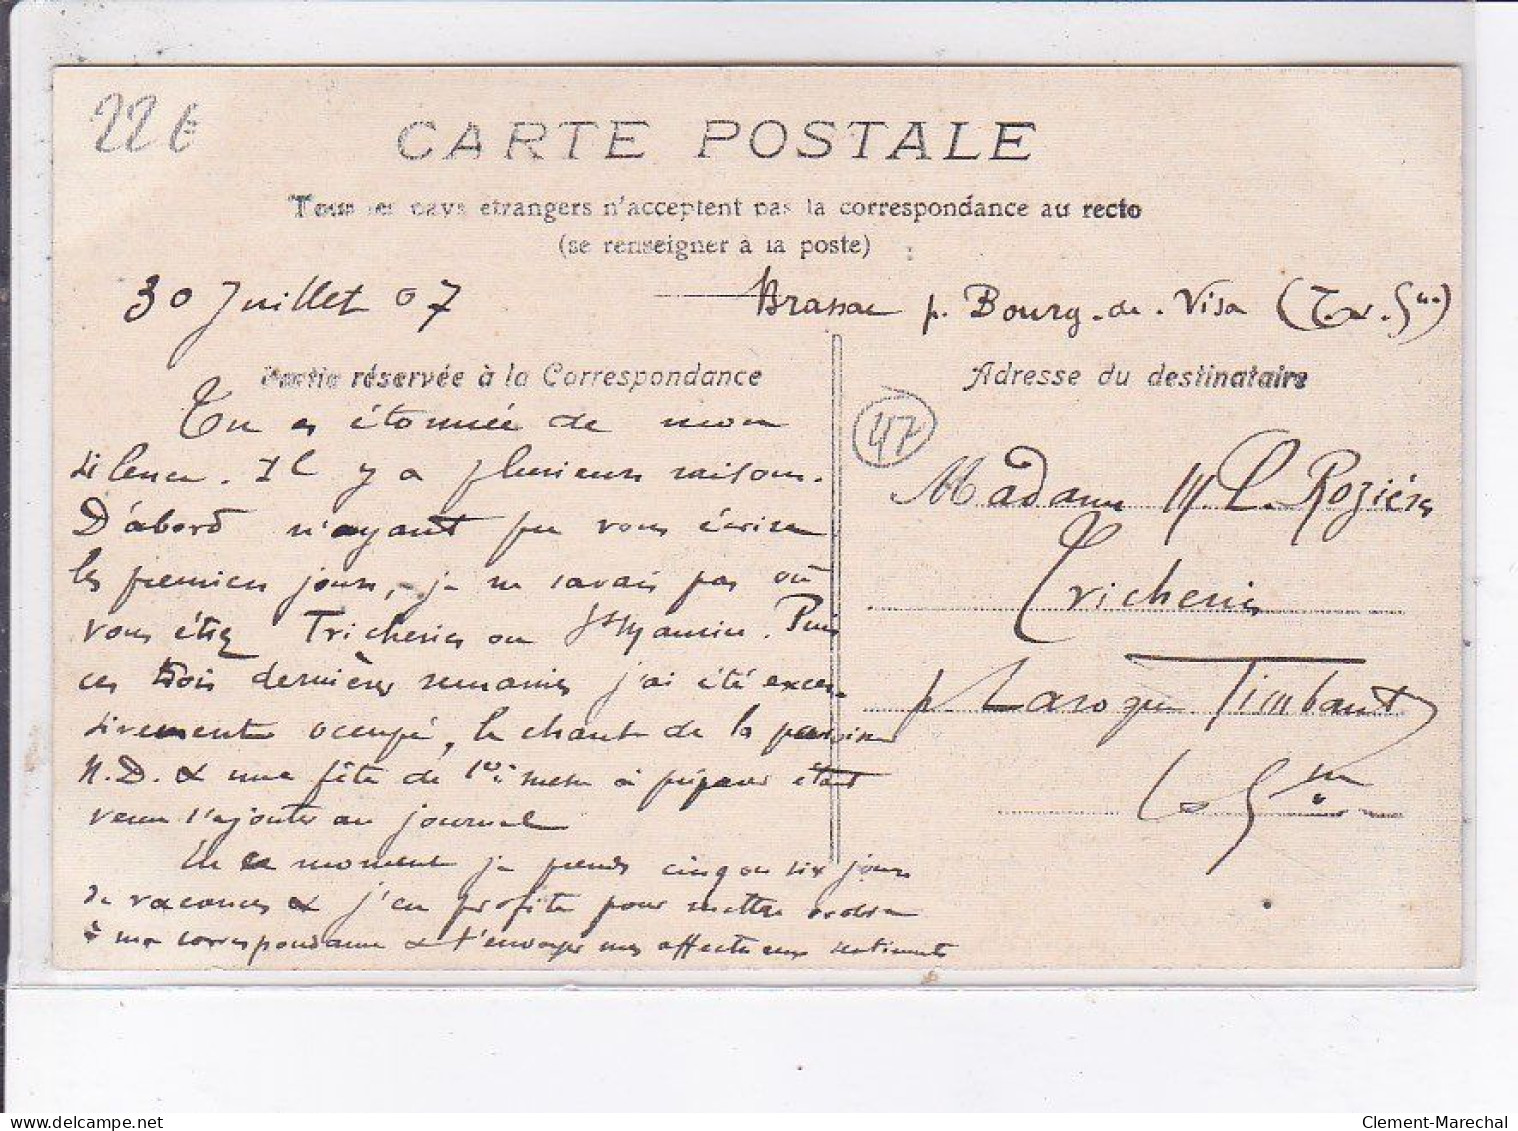 22€
CARTE POSTALE
Tous les pays étrangers n'acceptent pas la correspondance au recto
(se renseigner à la poste)
30 Juillet 07
Brassac p. Bourg-de-Visa (T.-&-Gne)
Partie réservée à la Correspondance
Adresse du destinataire
47
Tu es étonnée de mon
silence. Il y a plusieurs raisons.
D'abord n'ayant pu vous écrire
les premiers jours, je ne savais pas où
vous étiez Tricheries ou St Maurin. Puis
ces trois dernières semaines j'ai été exces-
sivement occupé, le chant de la paroisse
N.D. & une fête de 1ère messe à préparer étant
venu s'ajouter au journal
En ce moment je prends cinq ou six jours
de vacances & j'en profite pour mettre ordre
à ma correspondance & t'envoyer mes affectueux sentiments
Madame M L. Rozières
Tricheries
p. Laroque Timbaut
L & Gne
Clement-Marechal